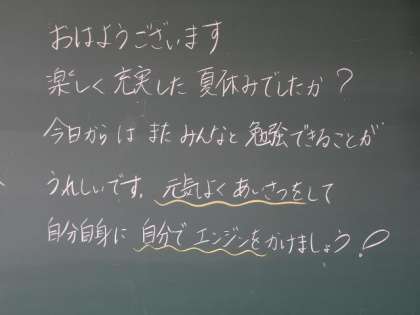 おはようございます
楽しく充実した夏休みでしたか？
今日からはまたみんなと勉強できることが
うれしいです。元気よくあいさつをして
自分自身に自分でエンジンをかけましょう！